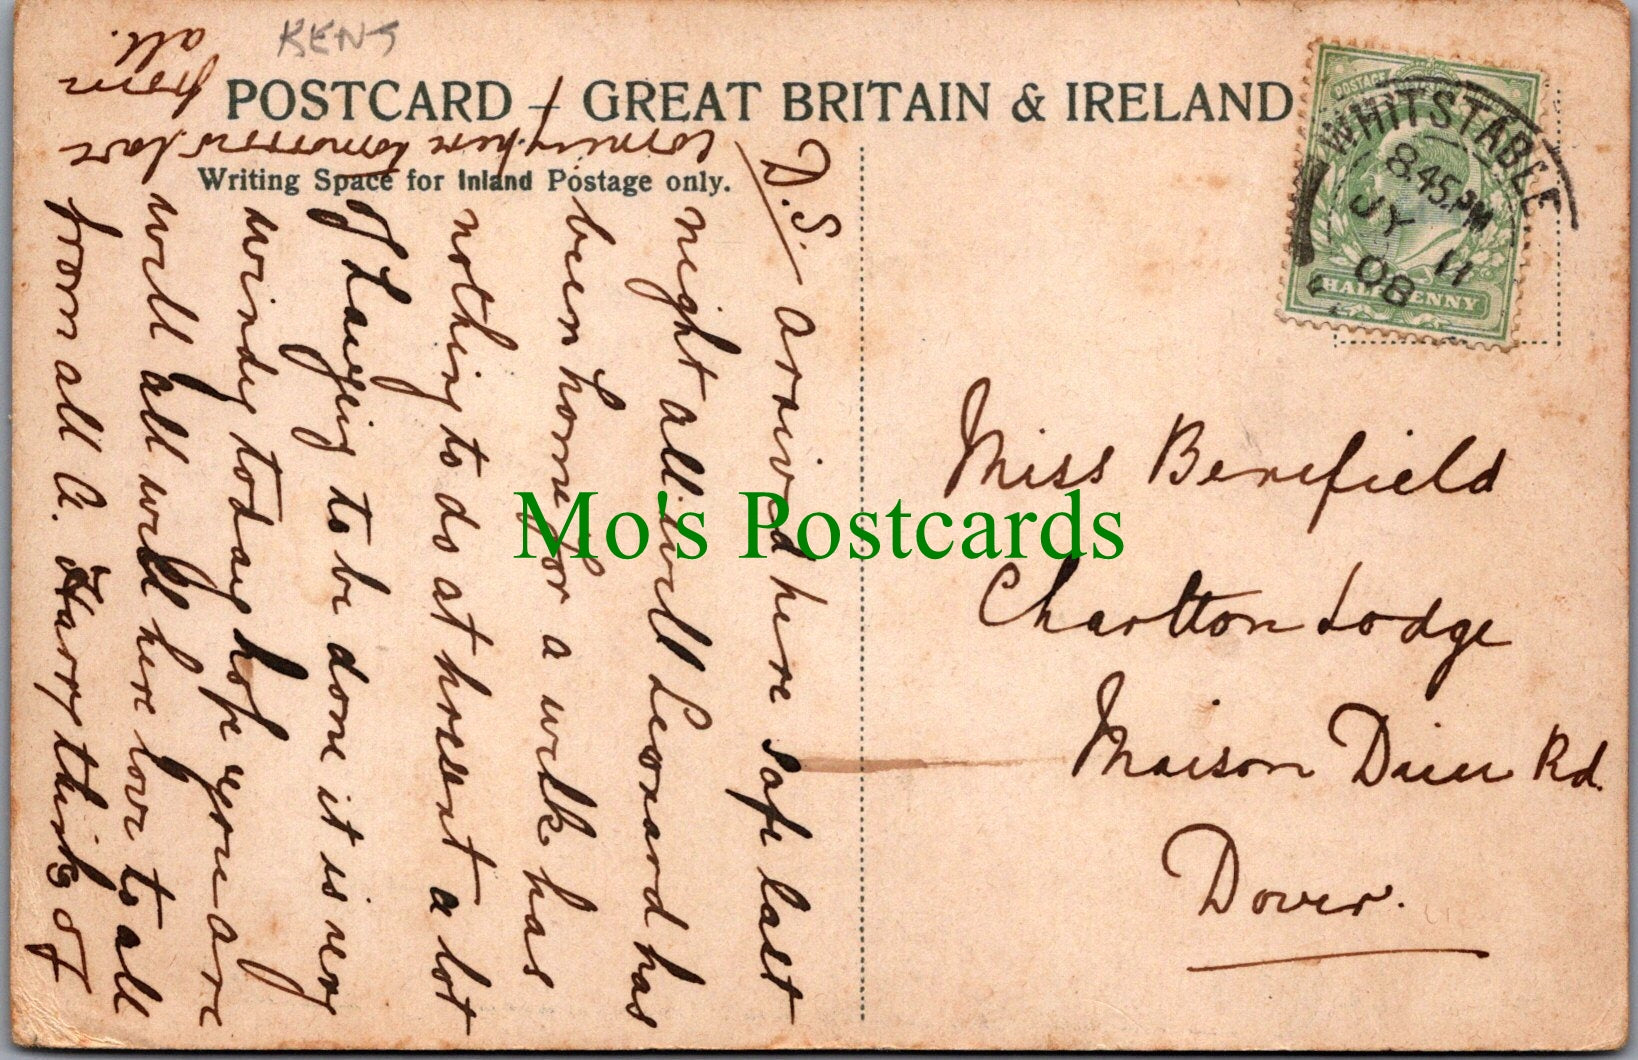 KENT
POSTCARD - GREAT BRITAIN & IRELAND
Writing Space for Inland Postage only.
D.S. arrived here safe last
night all well Leonard has
been home for a week has
nothing to do at present a lot
of to be done it is very
windy today hope you are
will all well here love to all
from all A. Harry thinks of
coming here tomorrow love
from
all.
POSTAGE
HALFPENNY
WHITSTABLE
8.45.PM
JY 11
08
Miss Benefield
Charlton Lodge
Maison Dieu Rd.
Dover.
Mo's Postcards